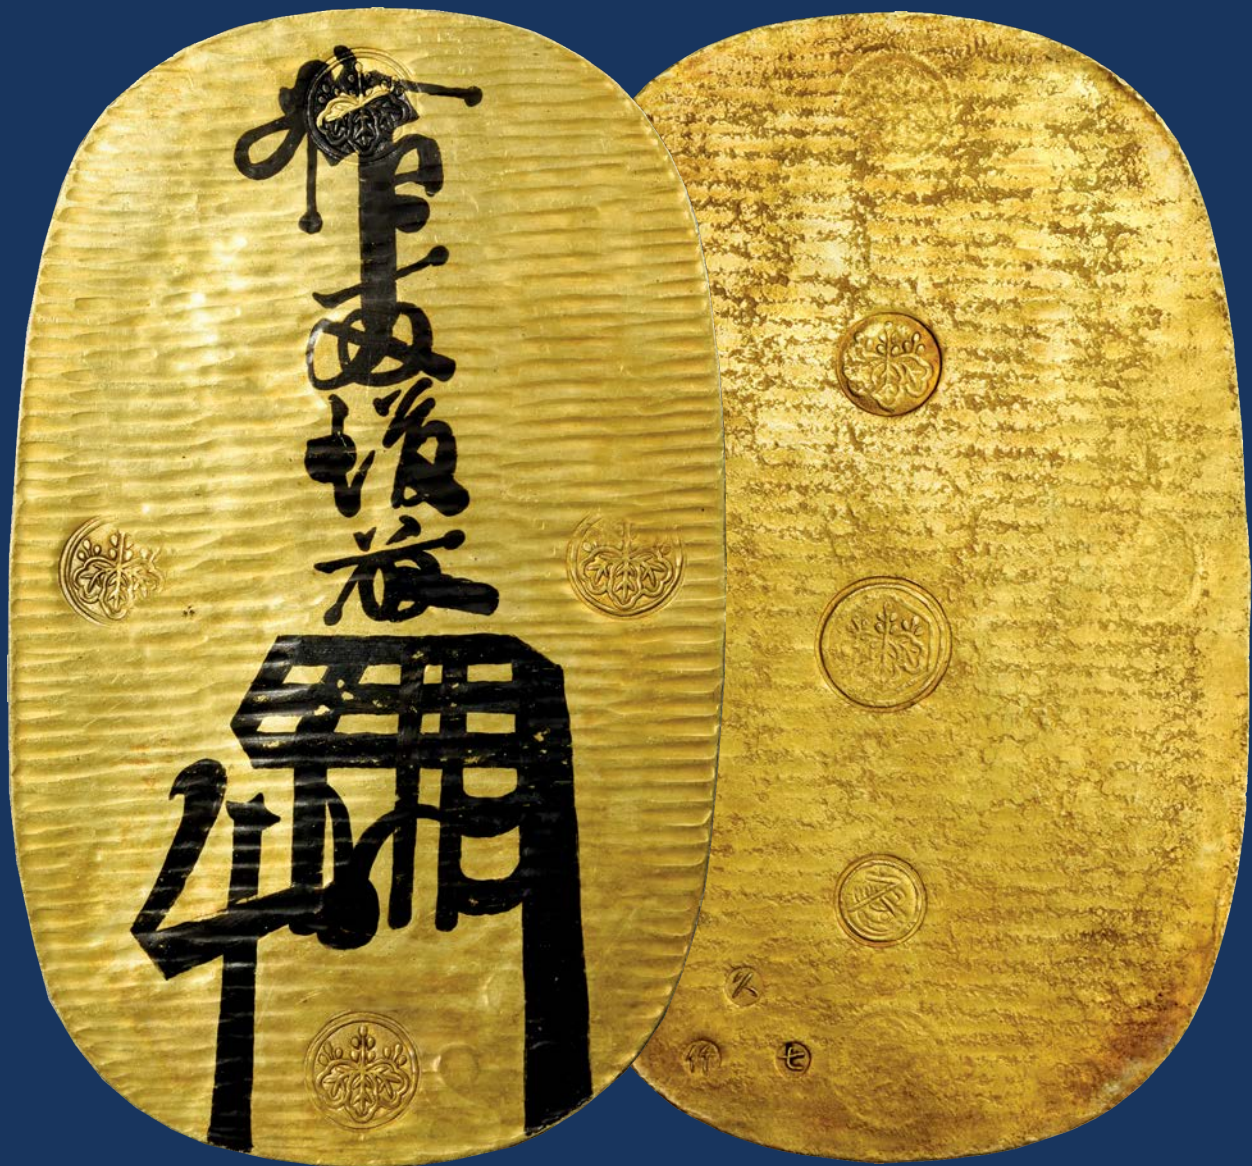 拾両後藤
久
竹 七